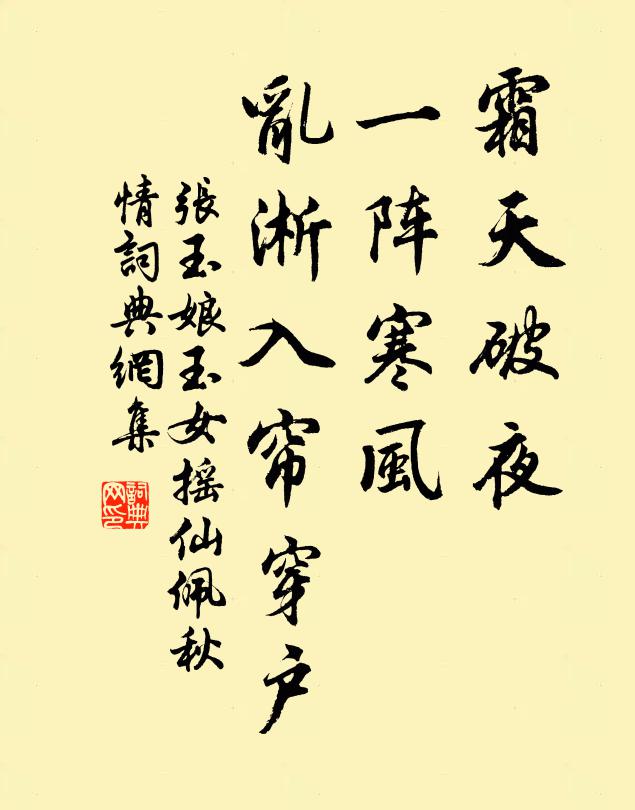 霜天破夜
一阵寒風
亂淅入帘穿户
張玉娘玉女摇仙佩秋
情詞典網集
詞典网印